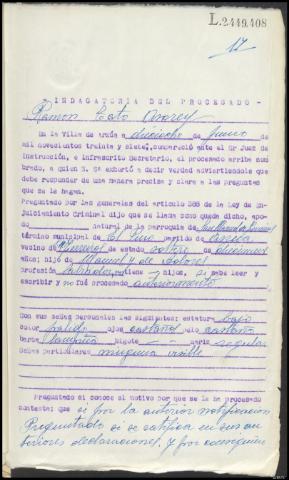 L.2449.408
17
- INDAGATORIA DEL PROCESADO -
Ramon Couto
En la Villa de Arzúa a dieciocho de Junio de
mil novecientos treinta y siete, compareció ante el Sr Juez de
Instrucción, e infrascrito Secretario, el procesado arriba nom-
brado, a quien S. Sª exhortó a decir verdad advirtiendole que
debe responder de una manera precisa y clara a las preguntas
que se le hagan.
Preguntado por las generales del artículo 388 de la Ley de En-
juiciamiento Criminal dijo que se llama como queda dicho, apo-
do natural de la parroquia de
término municipal de El Pino partido de Arzúa
vecino de de estado soltero de diecinueve
años; hijo de Manuel y de Dolores
profesión labrador, no tiene hijos, si sabe leer y
escribir y no fué procesado anteriormente
Con sus señas personales las siguientes: estatura bajo
color pálido ojos castaños pelo castaño
barba bigote - - nariz regular
señas particulares ninguna visible
Preguntado si conoce el motivo por que se le ha procesado
contesta: que si por la anterior notificación
Preguntado si se ratifica en sus an-
teriores declaraciones, y por consiguien